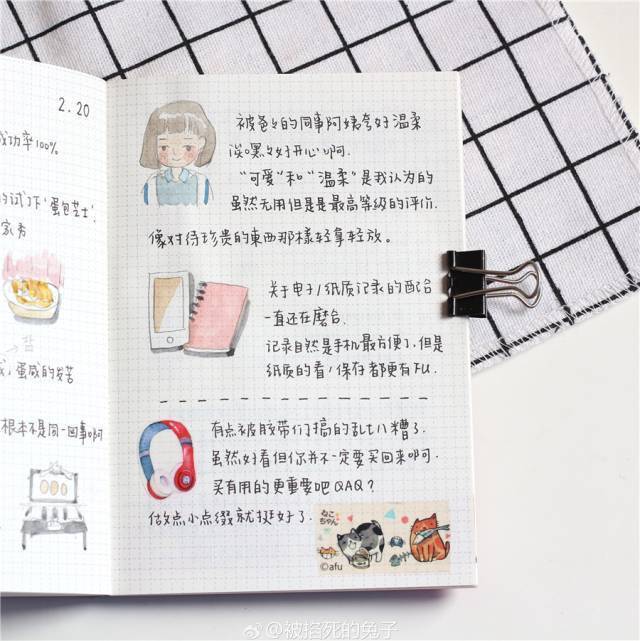 2.20
成功率100%.
的试了下‘蛋包芝士’
家秀
盐
蛋咸的发苦
根本不是同一回事啊
被爸々的同事阿姨夸好温柔
诶嘿々好开心啊.
“可爱”和“温柔”是我认为的
虽然无用但是是最高等级的评价.
像对待珍贵的東西那樣轻拿轻放。
关于电子/纸质记录的配合
一直还在磨合.
记录自然是手机最方便了.但是
纸质的看/保存都更有FU.
有点被胶带们搞的乱七八糟了.
虽然好看但你并不一定要买回来啊.
买有用的更重要吧QAQ？
做点小点缀就挺好了.
ねこ
ちゃん
©afu
@被掐死的兔子